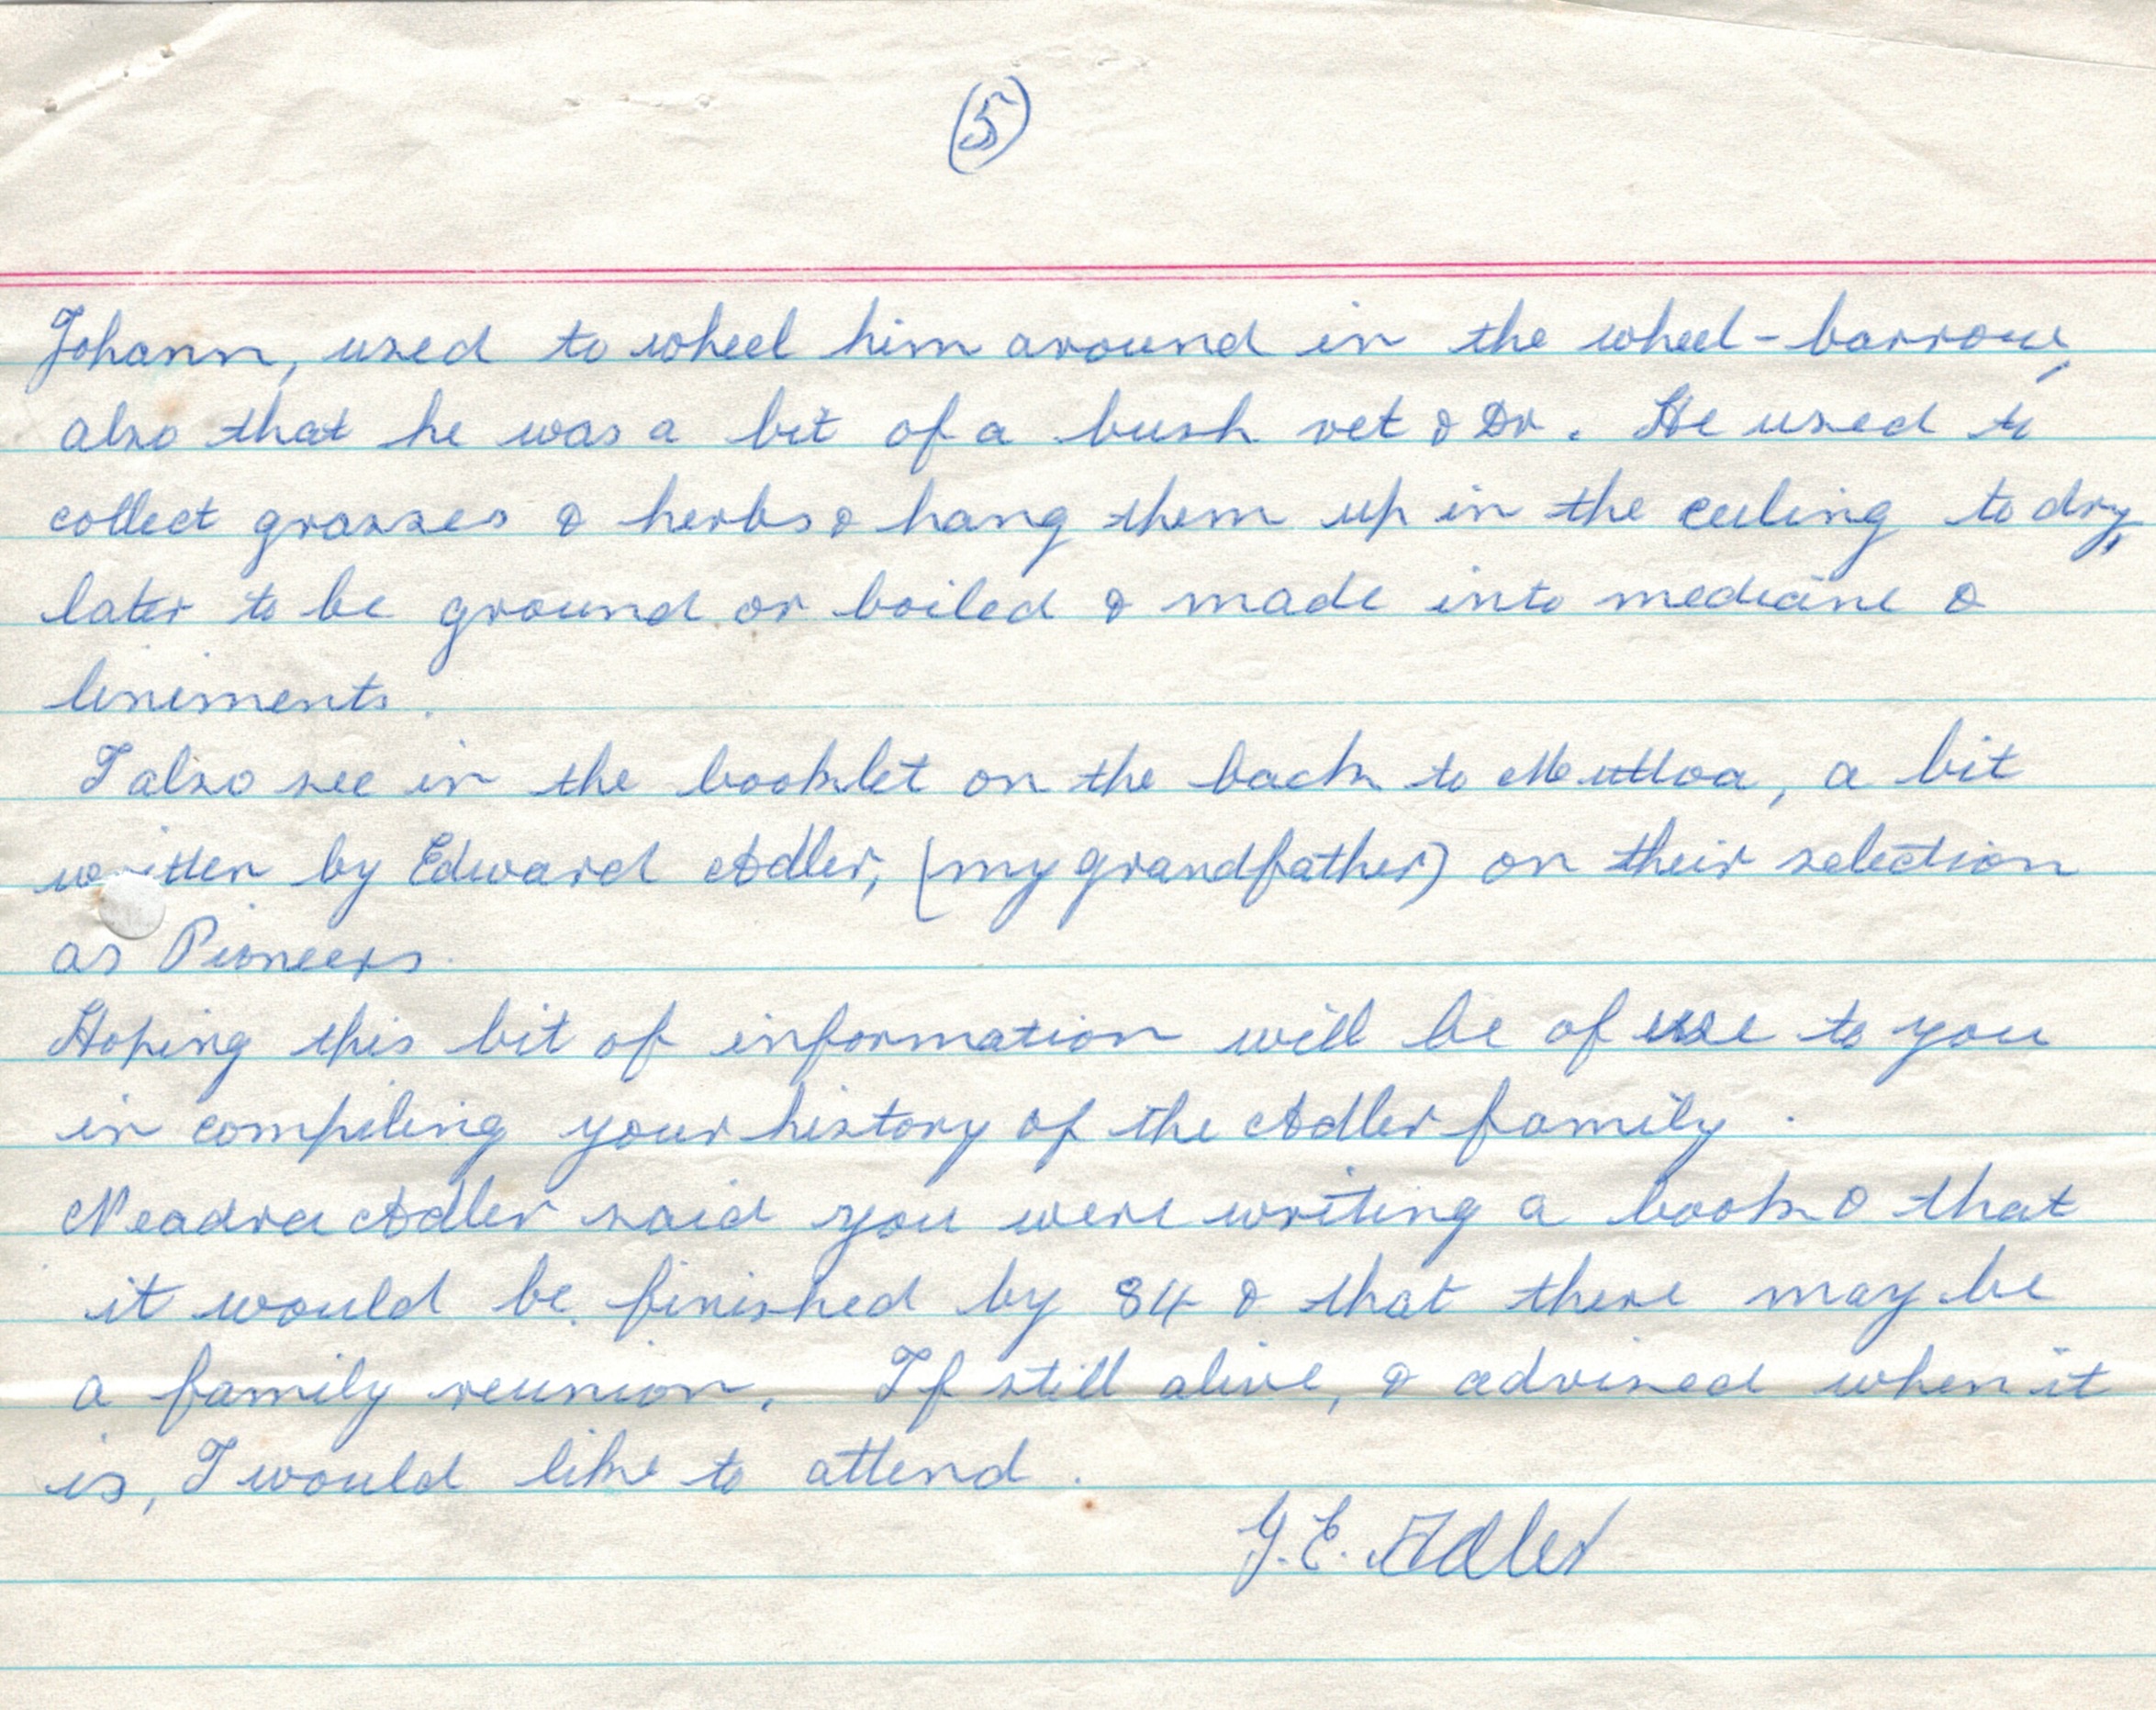 5
Johann, used to wheel him around in the wheel-barrow,
also that he was a bit of a bush vet & Dr. He used to
collect grasses & herbs & hang them up in the ceiling to dry,
later to be ground or boiled & made into medicine &
liniments.
I also see in the booklet on the back to Mutloa, a bit
written by Edward Adler, (my grandfather) on their selection
as Pioneers.
Hoping this bit of information will be of use to you
in compiling your history of the Adler family.
Neadra Adler said you were writing a book & that
it would be finished by 84 & that there may be
a family reunion. If still alive, & advised when it
is, I would like to attend.
G. E. Adler